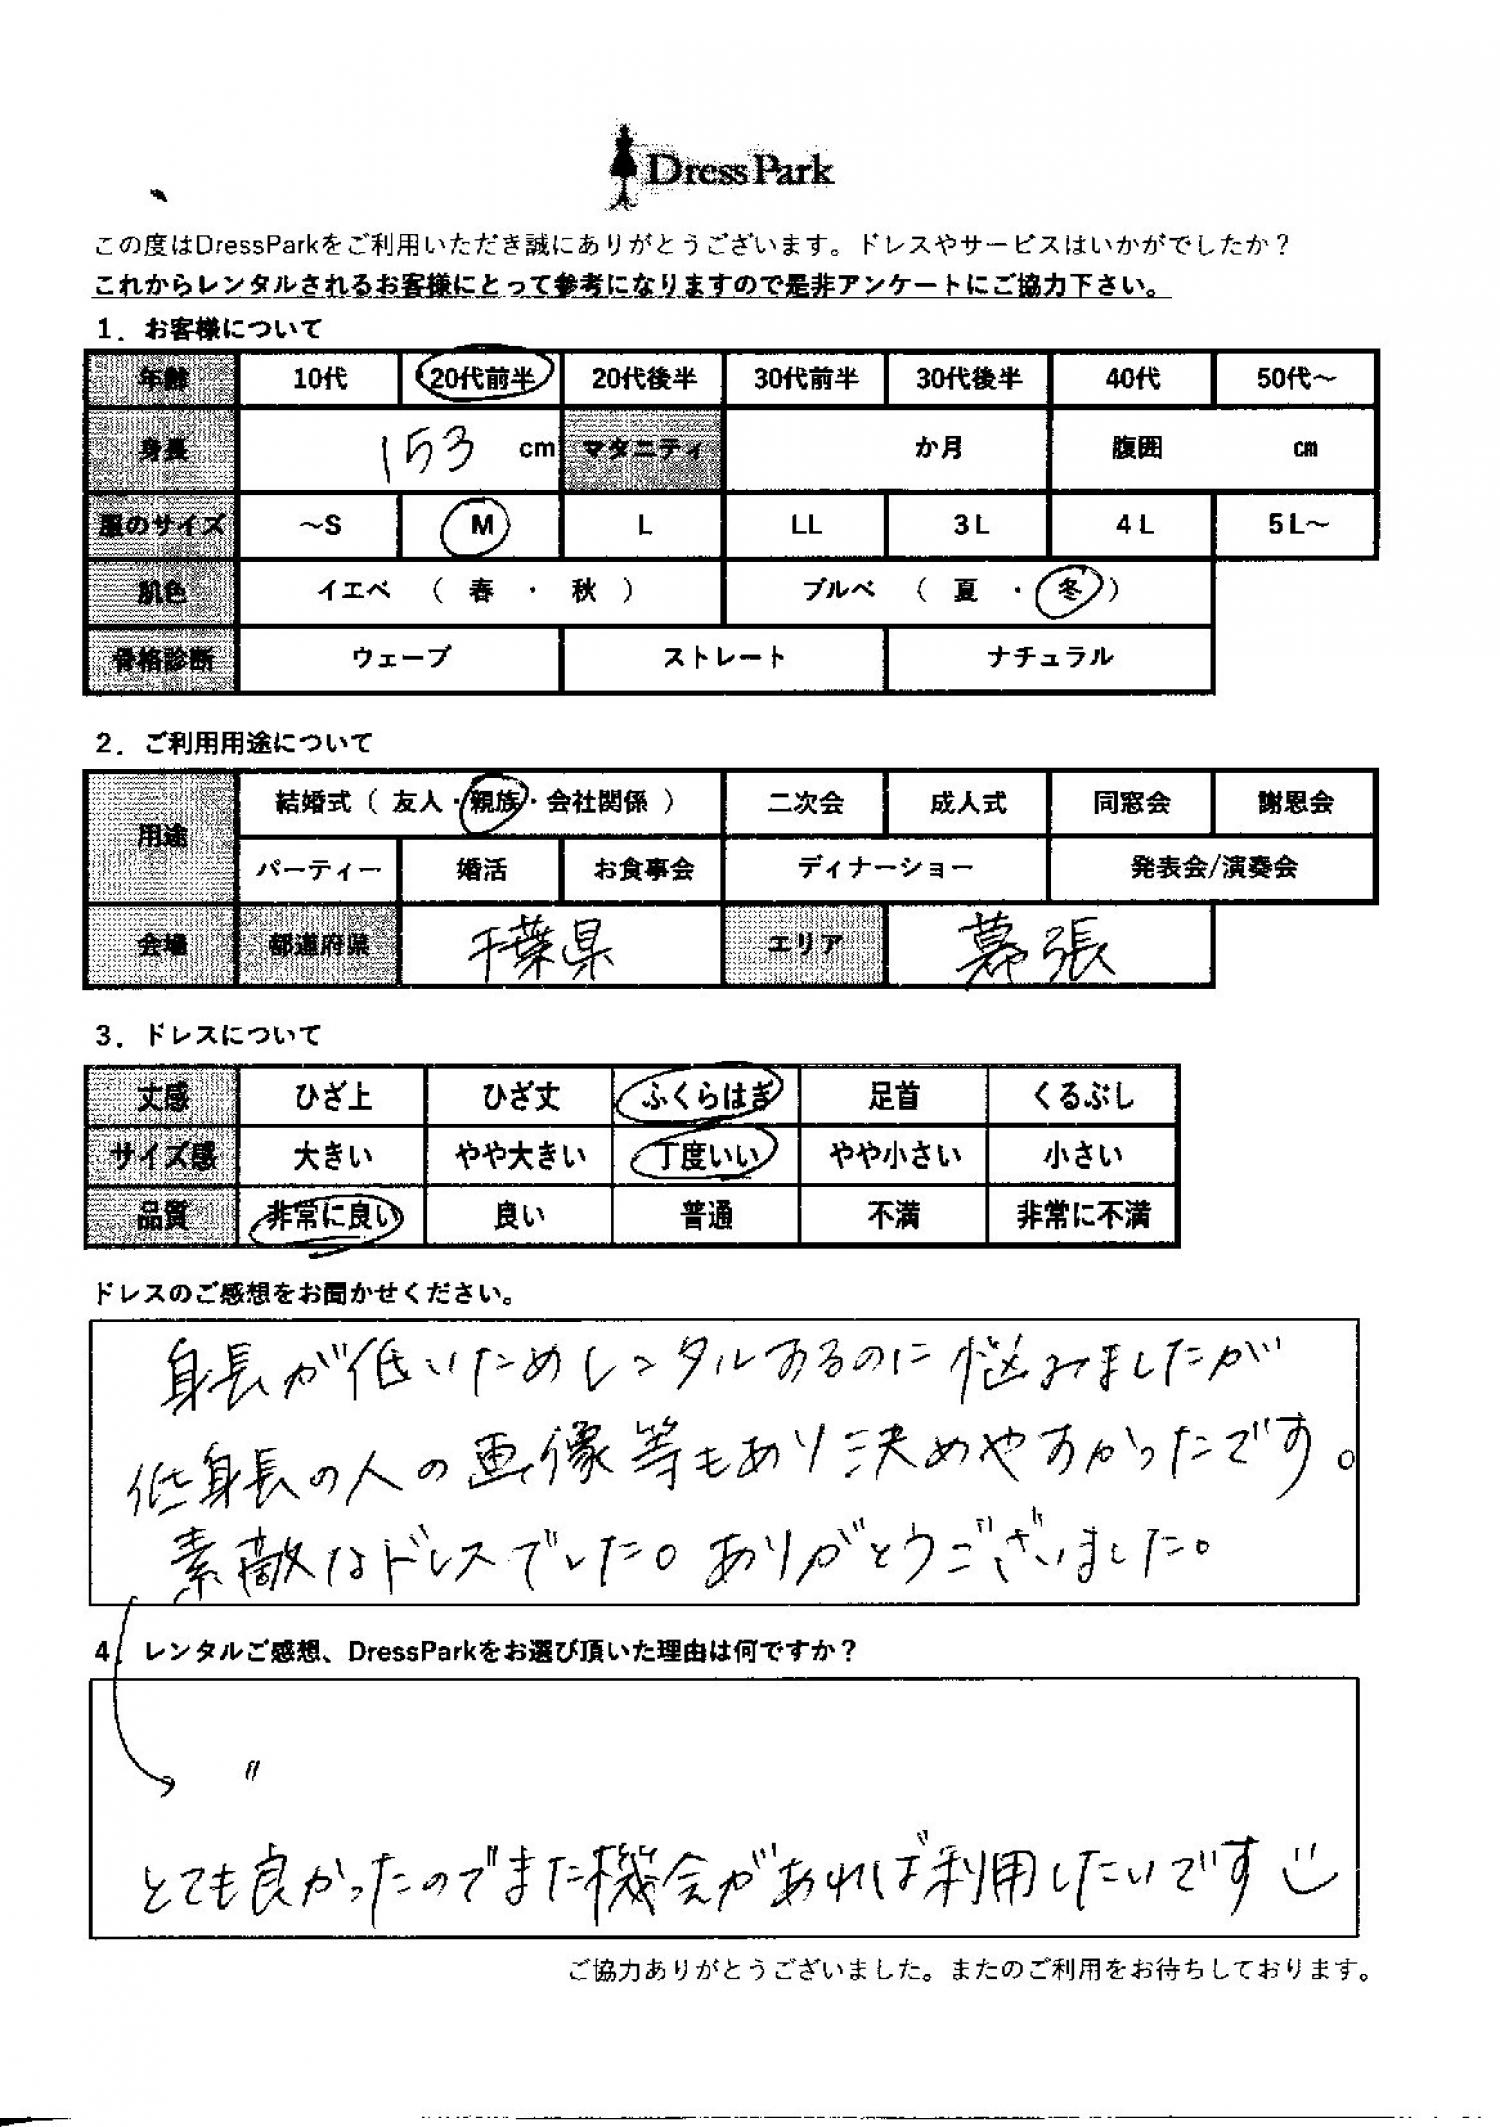 DressPark
この度はDressParkをご利用いただき誠にありがとうございます。ドレスやサービスはいかがでしたか？
これからレンタルされるお客様にとって参考になりますので是非アンケートにご協力下さい。
1．お客様について
年齢 10代 20代前半 20代後半 30代前半 30代後半 40代 50代～
身長 153 cm マタニティ か月 腹囲 cm
服のサイズ ～S M L LL 3L 4L 5L～
肌色 イエベ （ 春 ・ 秋 ） ブルベ （ 夏 ・ 冬 ）
骨格診断 ウェーブ ストレート ナチュラル
2．ご利用用途について
用途 結婚式（ 友人・親族・会社関係 ） 二次会 成人式 同窓会 謝恩会
パーティー 婚活 お食事会 ディナーショー 発表会/演奏会
会場 都道府県 千葉県 エリア 幕張
3．ドレスについて
丈感 ひざ上 ひざ丈 ふくらはぎ 足首 くるぶし
サイズ感 大きい やや大きい 丁度いい やや小さい 小さい
品質 非常に良い 良い 普通 不満 非常に不満
ドレスのご感想をお聞かせください。
身長が低いためレンタルするのに悩みましたが
低身長の人の画像等もあり決めやすかったです。
素敵なドレスでした。ありがとうございました。
4．レンタルご感想、DressParkをお選び頂いた理由は何ですか？
〃
とても良かったのでまた機会があれば利用したいです
ご協力ありがとうございました。またのご利用をお待ちしております。